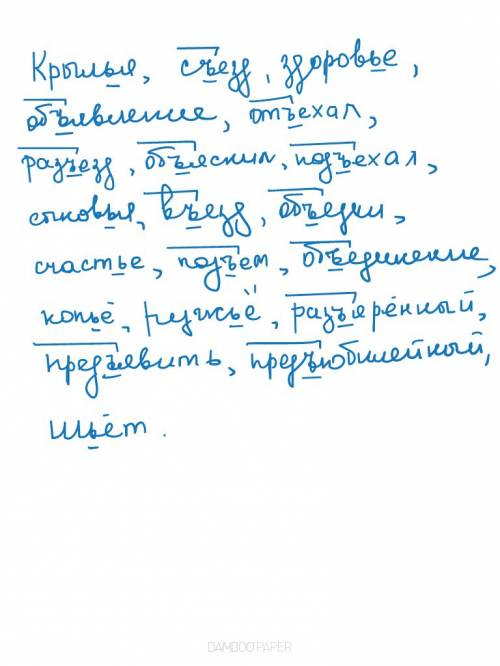 Крылья, съезд, здоровье,
объявление, отъехал,
разъезд, объяснил, подъехал,
сыновья, въезд, объедки,
счастье, подъем, объединение,
копьё, ружьё, разъярённый,
предъявить, предъюбилейный,
шьёт.
BAMBOOPAPER